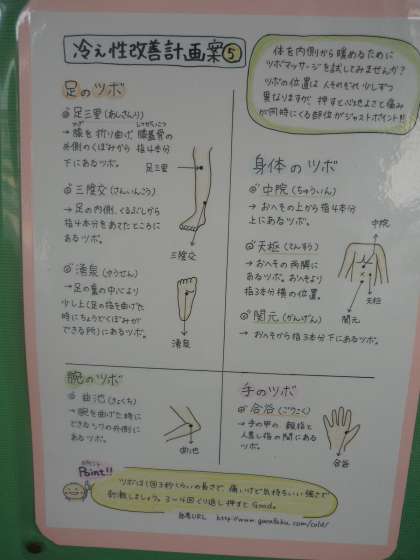 冷え性改善計画案⑤
体を内側から暖めるために
ツボマッサージを試してみませんか?
ツボの位置は人それぞれ少しずつ
異なりますが、押すと心地よさと痛み
が同時にくる部位がジャストポイント!!
足のツボ
足三里(あしさんり)
→膝を折り曲げ、膝蓋骨の
外側のくぼみから指4本分
下にあるツボ。
足三里
三陰交(さんいんこう)
→足の内側、くるぶしから
指4本分をあてたところに
あるツボ。
三陰交
湧泉(ゆうせん)
→足の裏の中心より
少し上(足の指を曲げた
時にちょうどくぼみが
できる所)にあるツボ。
湧泉
身体のツボ
中院(ちゅういん)
→おへその上から指4本分
上にあるツボ。
中院
天枢(てんすう)
→おへその両隣に
あるツボ。おへそより
指3本分横の位置。
天枢
関元
関元(かんげん)
→おへそから指3本分下にあるツボ。
腕のツボ
曲池(きょくち)
→腕を曲げた時に
できるシワの外側に
あるツボ。
曲池
手のツボ
合谷(ごうこく)
→手の甲の親指と
人差し指の間にある
ツボ。
合谷
Point!!
ツボは1回3秒くらいの長さで、痛いけど気持ちいい強さで
刺激しましょう。3〜4回くり返し押すとGood。
参考URL